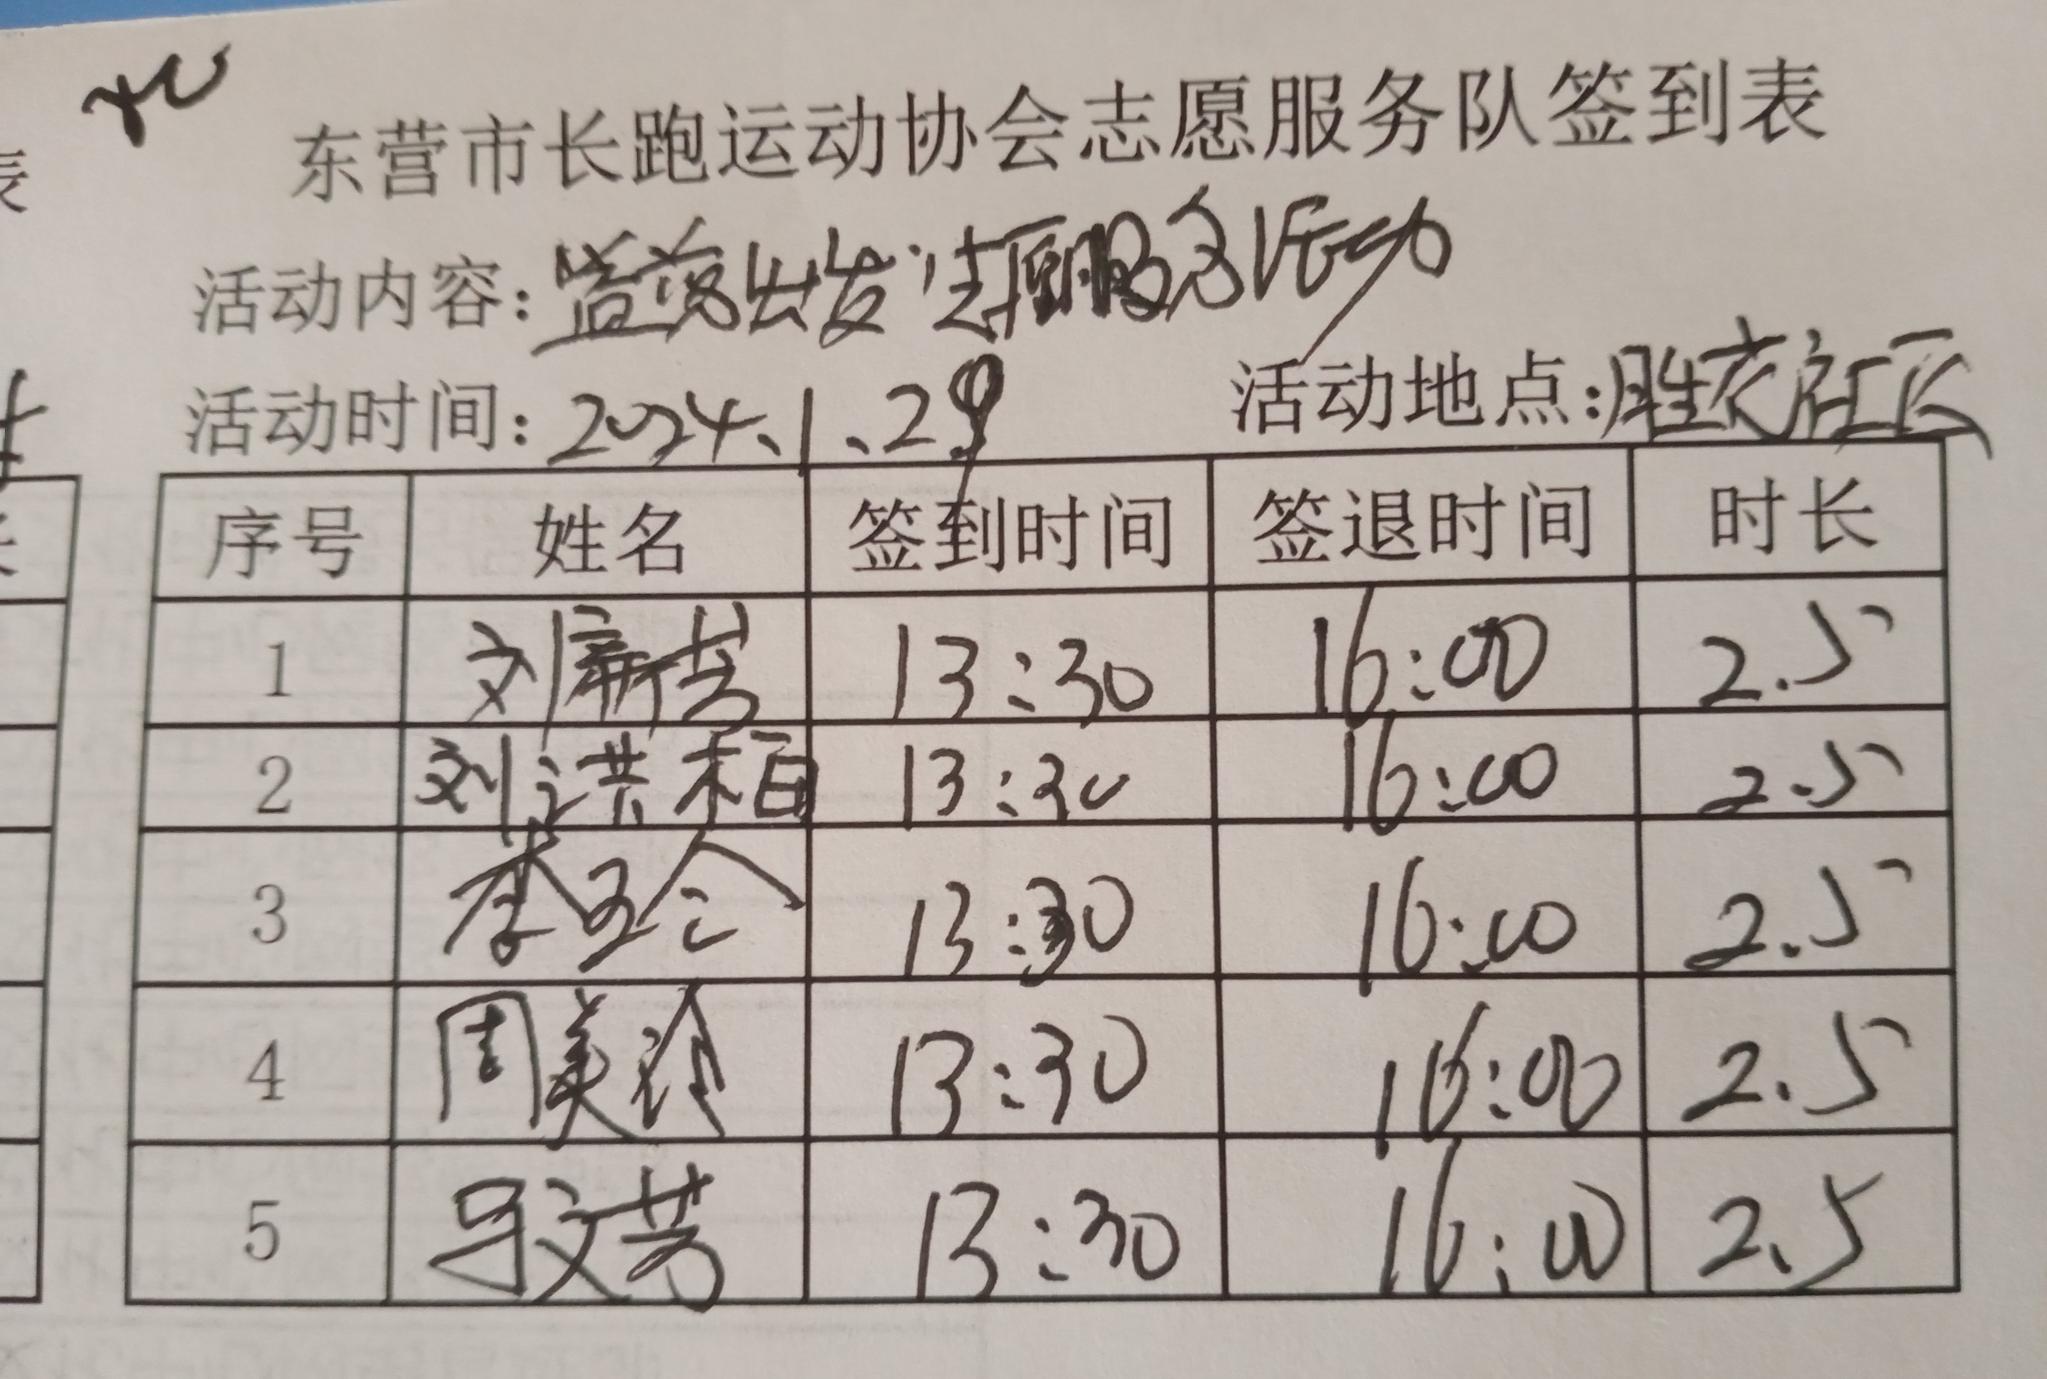 东营市长跑运动协会志愿服务队签到表
活动内容：益夕出发志愿服务活动
活动时间：2024.1.29
活动地点：胜利社区
序号 姓名 签到时间 签退时间 时长
1 刘新芳 13:30 16:00 2.5
2 刘洪相 13:30 16:00 2.5
3 李 13:30 16:00 2.5
4 周美玲 13:30 16:00 2.5
5 马文芳 13:30 16:00 2.5